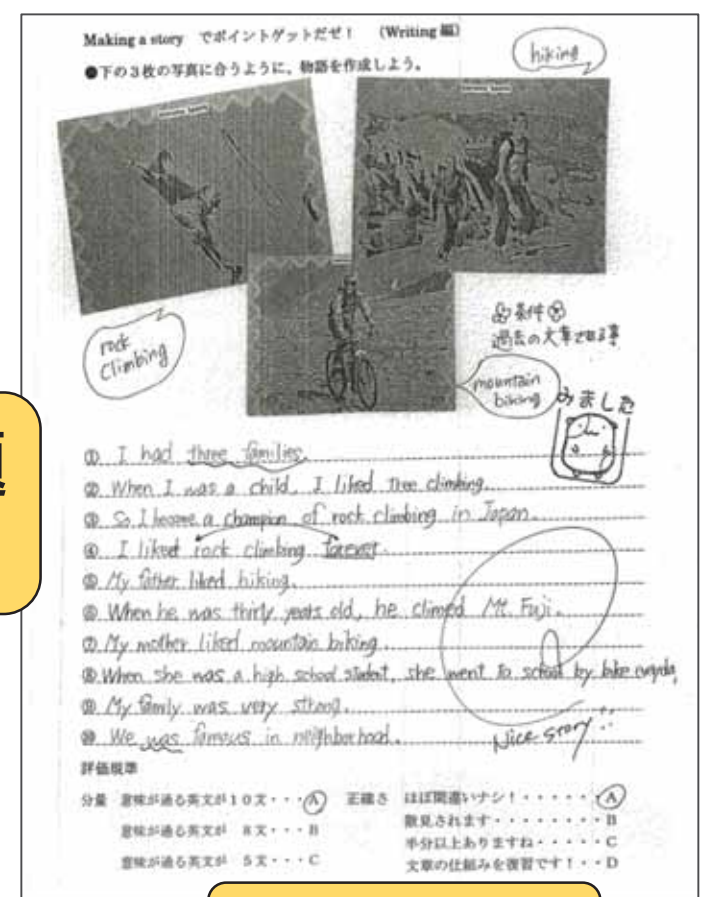 Making a story でポイントゲットだぜ！ （Writing 編）
●下の３枚の写真に合うように，物語を作成しよう。
hiking
rock
Climbing
条件
過去の文章であ事
mountain
biking
みました
① I had three families.
② When I was a child, I liked tree climbing.
③ So I become a champion of rock climbing in Japan.
④ I liked rock climbing forever.
⑤ My father liked hiking.
⑥ When he was thirty years old, he climed Mt. Fuji.
⑦ My mother liked mountain biking.
⑧ When she was a high school student, she went to school by bike everyday.
⑨ My family was very strong.
⑩ We was famous in neighborhood.
Nice story!!
評価規準
分量 意味が通る英文が１０文・・・Ⓐ 正確さ ほぼ間違いナシ！・・・・・・Ⓐ
意味が通る英文が ８文・・・B 散見されます・・・・・・・・B
半分以上ありますね・・・・・C
意味が通る英文が ５文・・・C
文章の仕組みを復習です！・・D